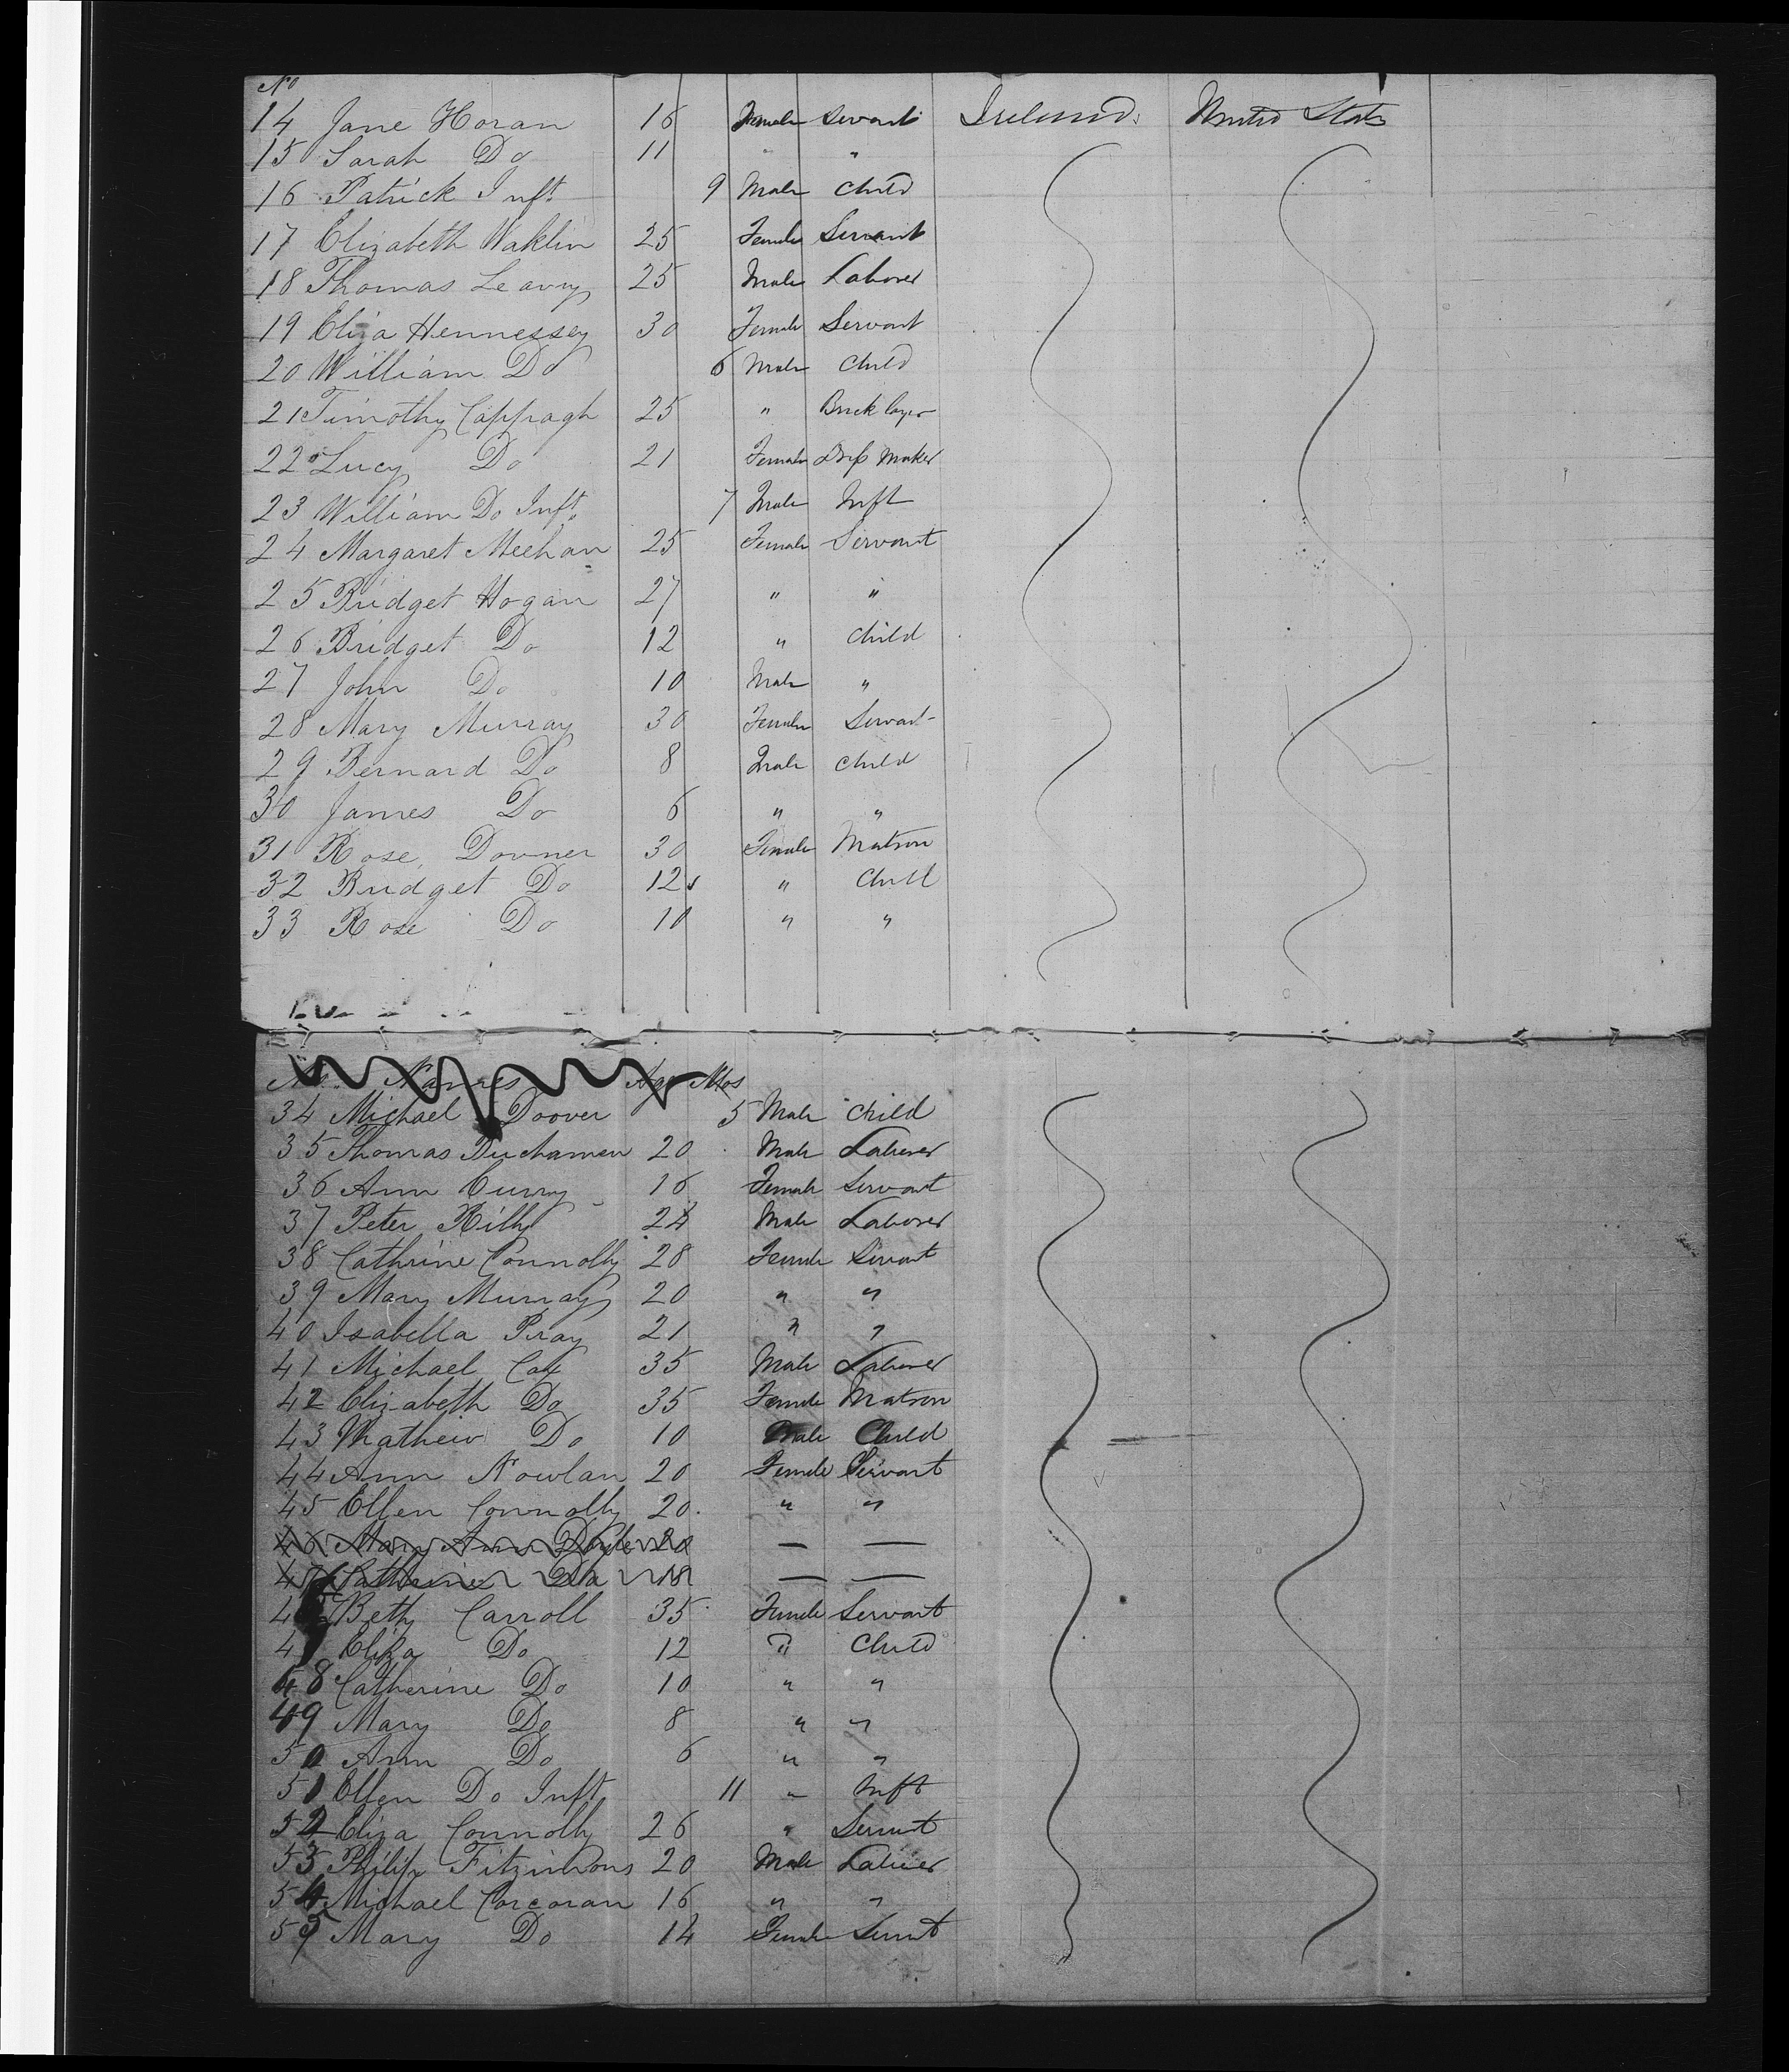 No
14 Jane Horan 16 Female Servant Ireland. United States
15 Sarah Do 11 " "
16 Patrick Inft 9 Male Child
17 Elizabeth Waklin 25 Female Servant
18 Thomas Leavy 25 Male Laborer
19 Eliza Hennessey 30 Female Servant
20 William Do 6 Male Child
21 Timothy Cappagh 25 " Brick layer
22 Lucy Do 21 Female Drss Maker
23 William Do Inft. 7 Male Inft
24 Margaret Meehan 25 Female Servant
25 Bridget Hogan 27 " "
26 Bridget Do 12 " Child
27 John Do 10 Male "
28 Mary Murray 30 Female Servant
29 Bernard Do 8 Male Child
30 James Do 6 " "
31 Rose Downer 30 Female Matron
32 Bridget Do 12 " Child
33 Rose Do 10 " "
No. Names Age Mos
34 Michael Doover 5 Male Child
35 Thomas 20 Male Laborer
36 Ann Curry 16 Female Servant
37 Peter Rilly 24 Male Laborer
38 Cathrine Connolly 28 Female Servant
39 Mary Murray 20 " "
40 Isabella Pray 21 " "
41 Michael Cox 35 Male Laborer
42 Elizabeth Do 35 Female Matron
43 Mathew Do 10 Male Child
44 Ann Nowlan 20 Female Servant
45 Ellen Connolly 20. " "
46 Mary Ann Doyle 20 — —
47 Catherine Do 18 — —
46 Betty Carroll 35 Female Servant
47 Eliza Do 12 " Child
48 Catherine Do 10 " "
49 Mary Do 8 " "
50 Ann Do 6 " "
51 Ellen Do Inft 11 " Inft
52 Eliza Connolly 26 " Servant
53 Philip Fitzimons 20 Male Laborer
54 Michael Corcoran 16 " "
55 Mary Do 14 Female Servnt